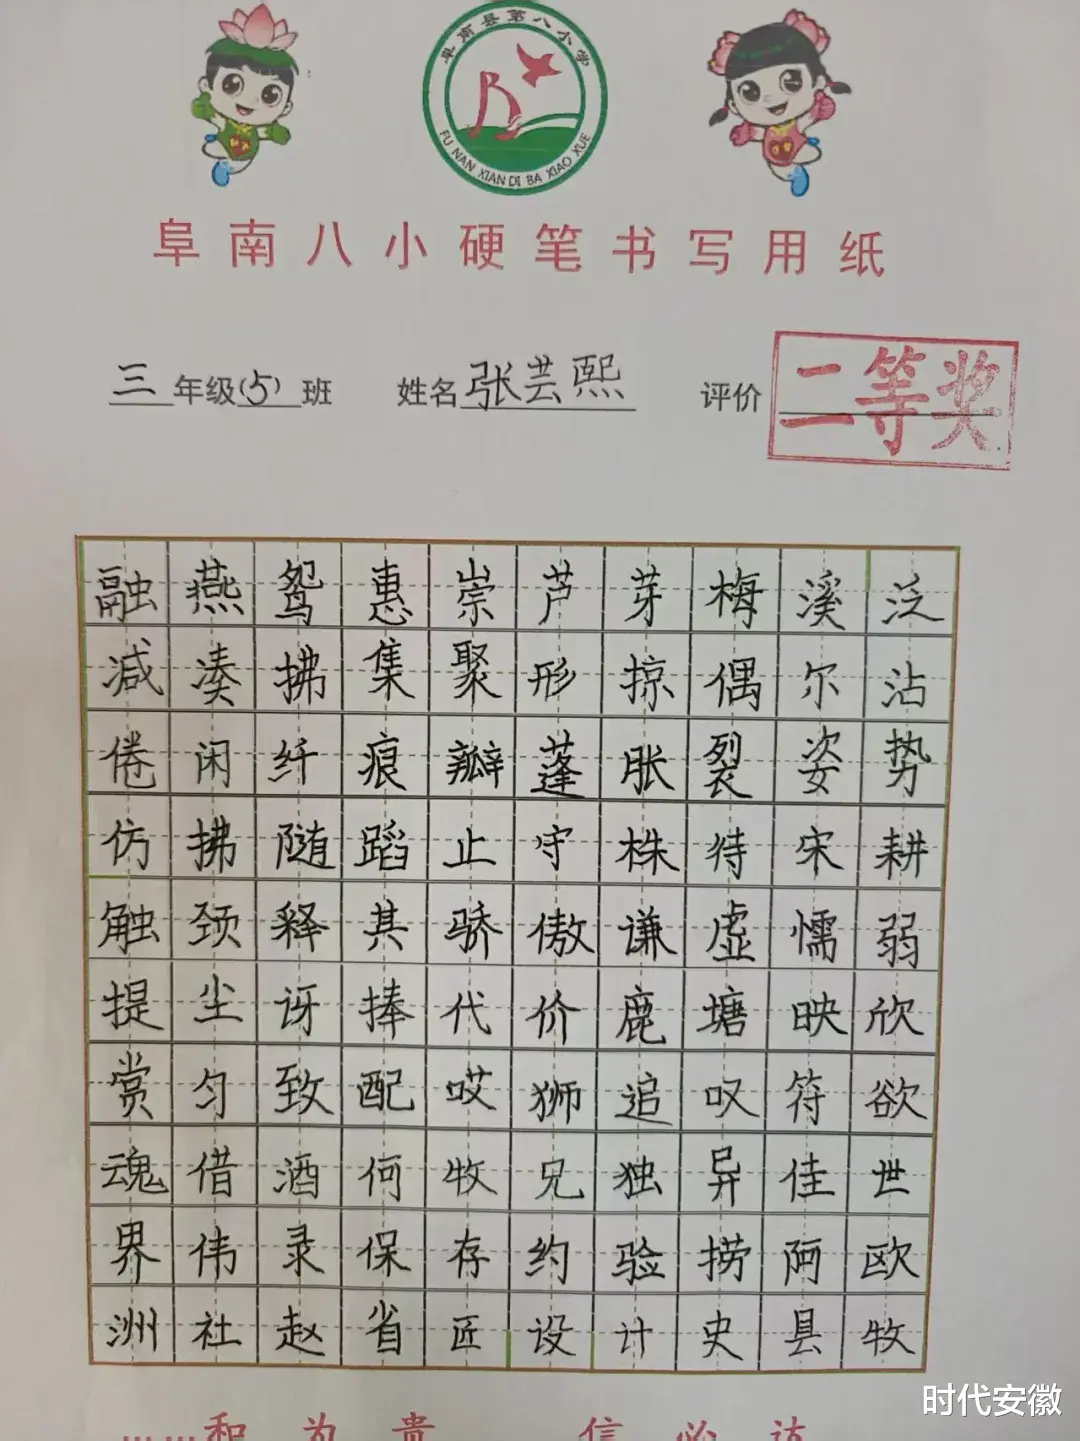 阜南县第八小学
FU NAN XIAN DI BA XIAO XUE
阜南八小硬笔书写用纸
三年级(5)班 姓名张芸熙 评价二等奖
融燕鸳惠崇芦芽梅溪泛
减凑拂集聚形掠偶尔沾
倦闲纤痕瓣蓬胀裂姿势
仿拂随蹈止守株待宋耕
触颈释其骄傲谦虚懦弱
提尘讶捧代价鹿塘映欣
赏匀致配哎狮追叹符欲
魂借酒何牧兄独异佳世
界伟录保存约验捞阿欧
洲社赵省匠设计史县牧
……和为贵 信必达
时代安徽